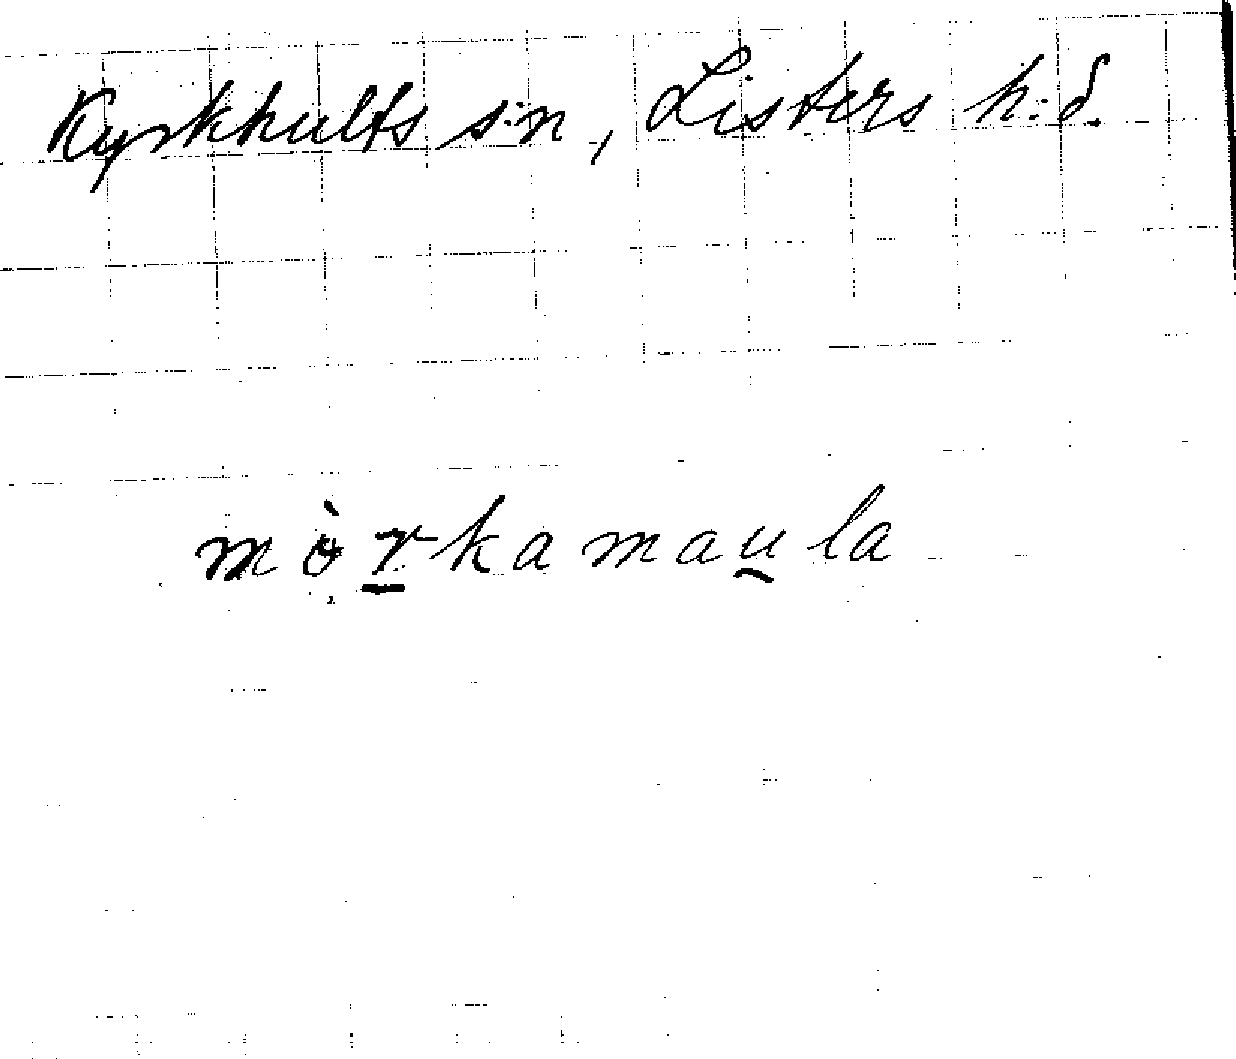 Kyrkhults s:n, Listers h:d.
mò̩r̲kamau̯la